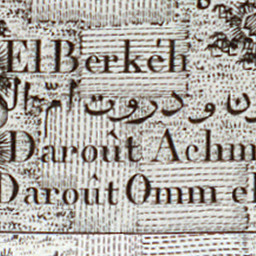 El Berkéh
ن و دروت امّ
Daroût Achm
Daroût Omm el